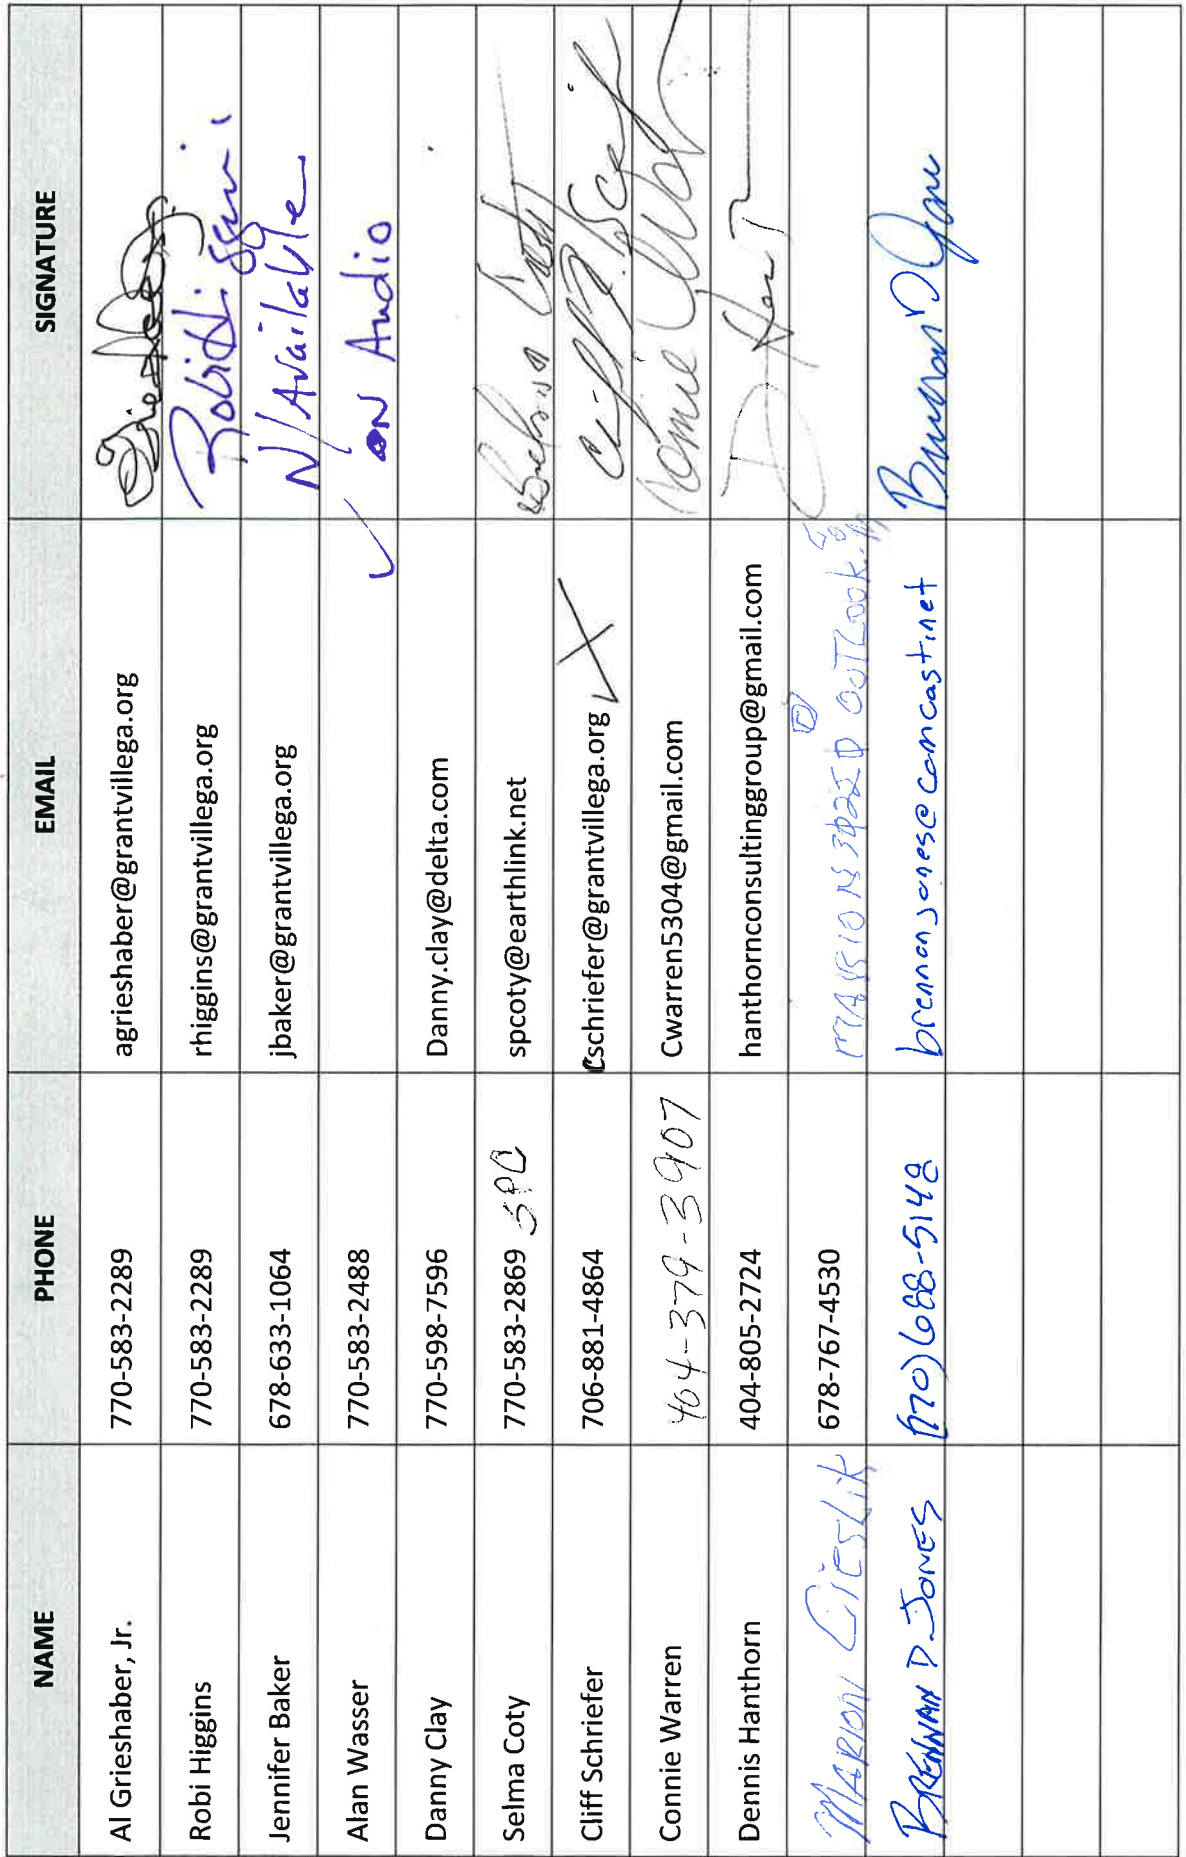 NAME PHONE EMAIL SIGNATURE
Al Grieshaber, Jr. 770-583-2289 agrieshaber@grantvillega.org
Robi Higgins 770-583-2289 rhiggins@grantvillega.org Robi Higgins
Jennifer Baker 678-633-1064 jbaker@grantvillega.org N/Available
Alan Wasser 770-583-2488 ✓ on Audio
Danny Clay 770-598-7596 Danny.clay@delta.com
Selma Coty 770-583-2869 SPC spcoty@earthlink.net Selma Coty
Cliff Schriefer 706-881-4864 cschriefer@grantvillega.org
Connie Warren 404-379-3907 Cwarren5304@gmail.com Connie
Dennis Hanthorn 404-805-2724 hanthornconsultinggroup@gmail.com
MARION CIESLIK 678-767-4530 OUTLOOK.COM
BRENNAN D. JONES (770) 688-5148 brennanjones@comcast.net Brennan D Jones